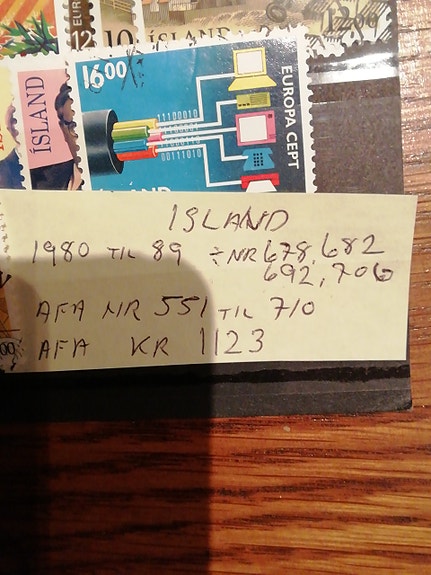 EUR
12
10
ÍSLAND
1200
16.00
ÍSLAND
EUROPA CEPT
11100010
01000111
11010110
ISLAND
1980 TIL 89 ÷ NR 678, 682
692, 706
AFA NR 551 TIL 710
AFA KR 1123
00